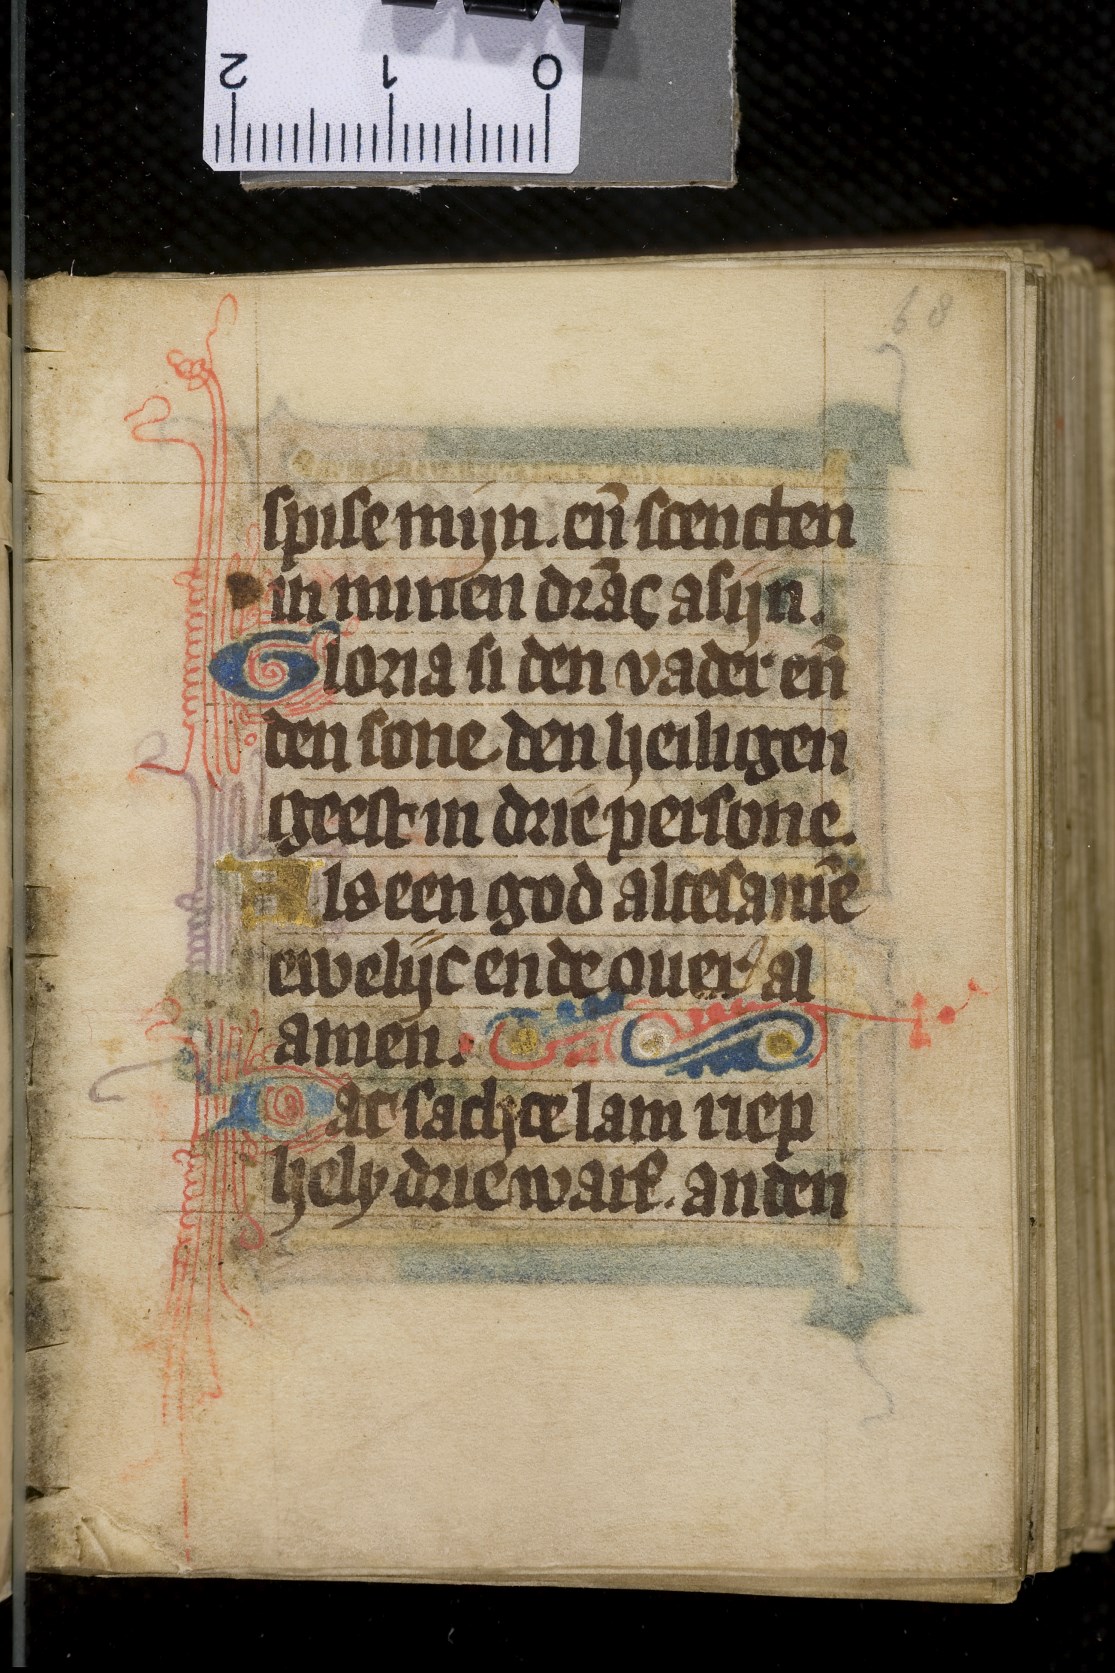 2 1 0
68
spise mijn. en̄ scencten
in minen drāc asijn.
Gloria si den vader en̄
den sone den heilighen
geest in drie persone.
Als een god altesam̄e
ewelijc ende ouer al
amen.
Dat sachte lam riep
hely driewarf. an den